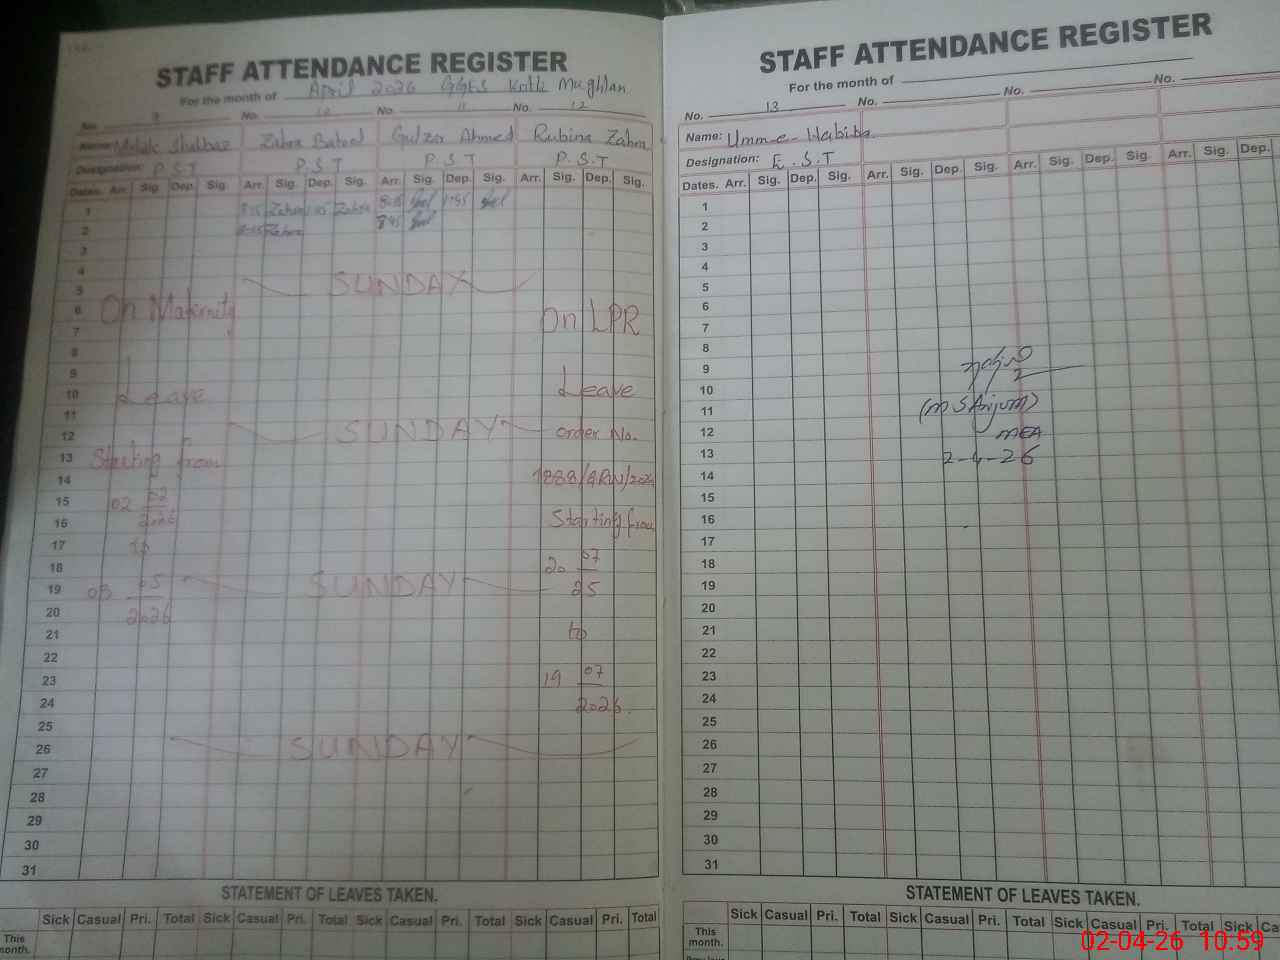 STAFF ATTENDANCE REGISTER
For the month of April 2026 GGES Kotli Mughlan
No. 9 No. 10 No. 11 No. 12
Name: Malak Shahbaz Zahra Batool Gulzar Ahmed Rubina Zahra
Designation: P.S.T P.S.T P.S.T P.S.T
Dates. Arr. Sig. Dep. Sig. Arr. Sig. Dep. Sig. Arr. Sig. Dep. Sig. Arr. Sig. Dep. Sig.
1 8-15 Zahra 1:45 Zahra 8-15 1:45
2 8-15 Zahra 8:45
3
4
5 SUNDAY
6 On Maternity
7 On LPR
8
9
10 Leave Leave
11
12 SUNDAY order No.
13 Starting from
14 1888/GRW/2025
15 02 02
16 2026 Starting from
17 to
18 20 07
19 03 05 SUNDAY 25
20 2026
21 to
22
23 19 07
24 2026.
25
26 SUNDAY
27
28
29
30
31
STATEMENT OF LEAVES TAKEN.
Sick Casual Pri. Total Sick Casual Pri. Total Sick Casual Pri. Total Sick Casual Pri. Total
This month.
STAFF ATTENDANCE REGISTER
For the month of
No. 13 No. No. No.
Name: Umm-e-Habiba
Designation: E.S.T
Dates. Arr. Sig. Dep. Sig. Arr. Sig. Dep. Sig. Arr. Sig. Dep. Sig. Arr. Sig. Dep.
1
2
3
4
5
6
7
8
9
10
11 (M S Anjum)
12 MEA
13 2-4-26
14
15
16
17
18
19
20
21
22
23
24
25
26
27
28
29
30
31
STATEMENT OF LEAVES TAKEN.
Sick Casual Pri. Total Sick Casual Pri. Total Sick Casual Pri. Total Sick Ca
This month.
02-04-26 10:59